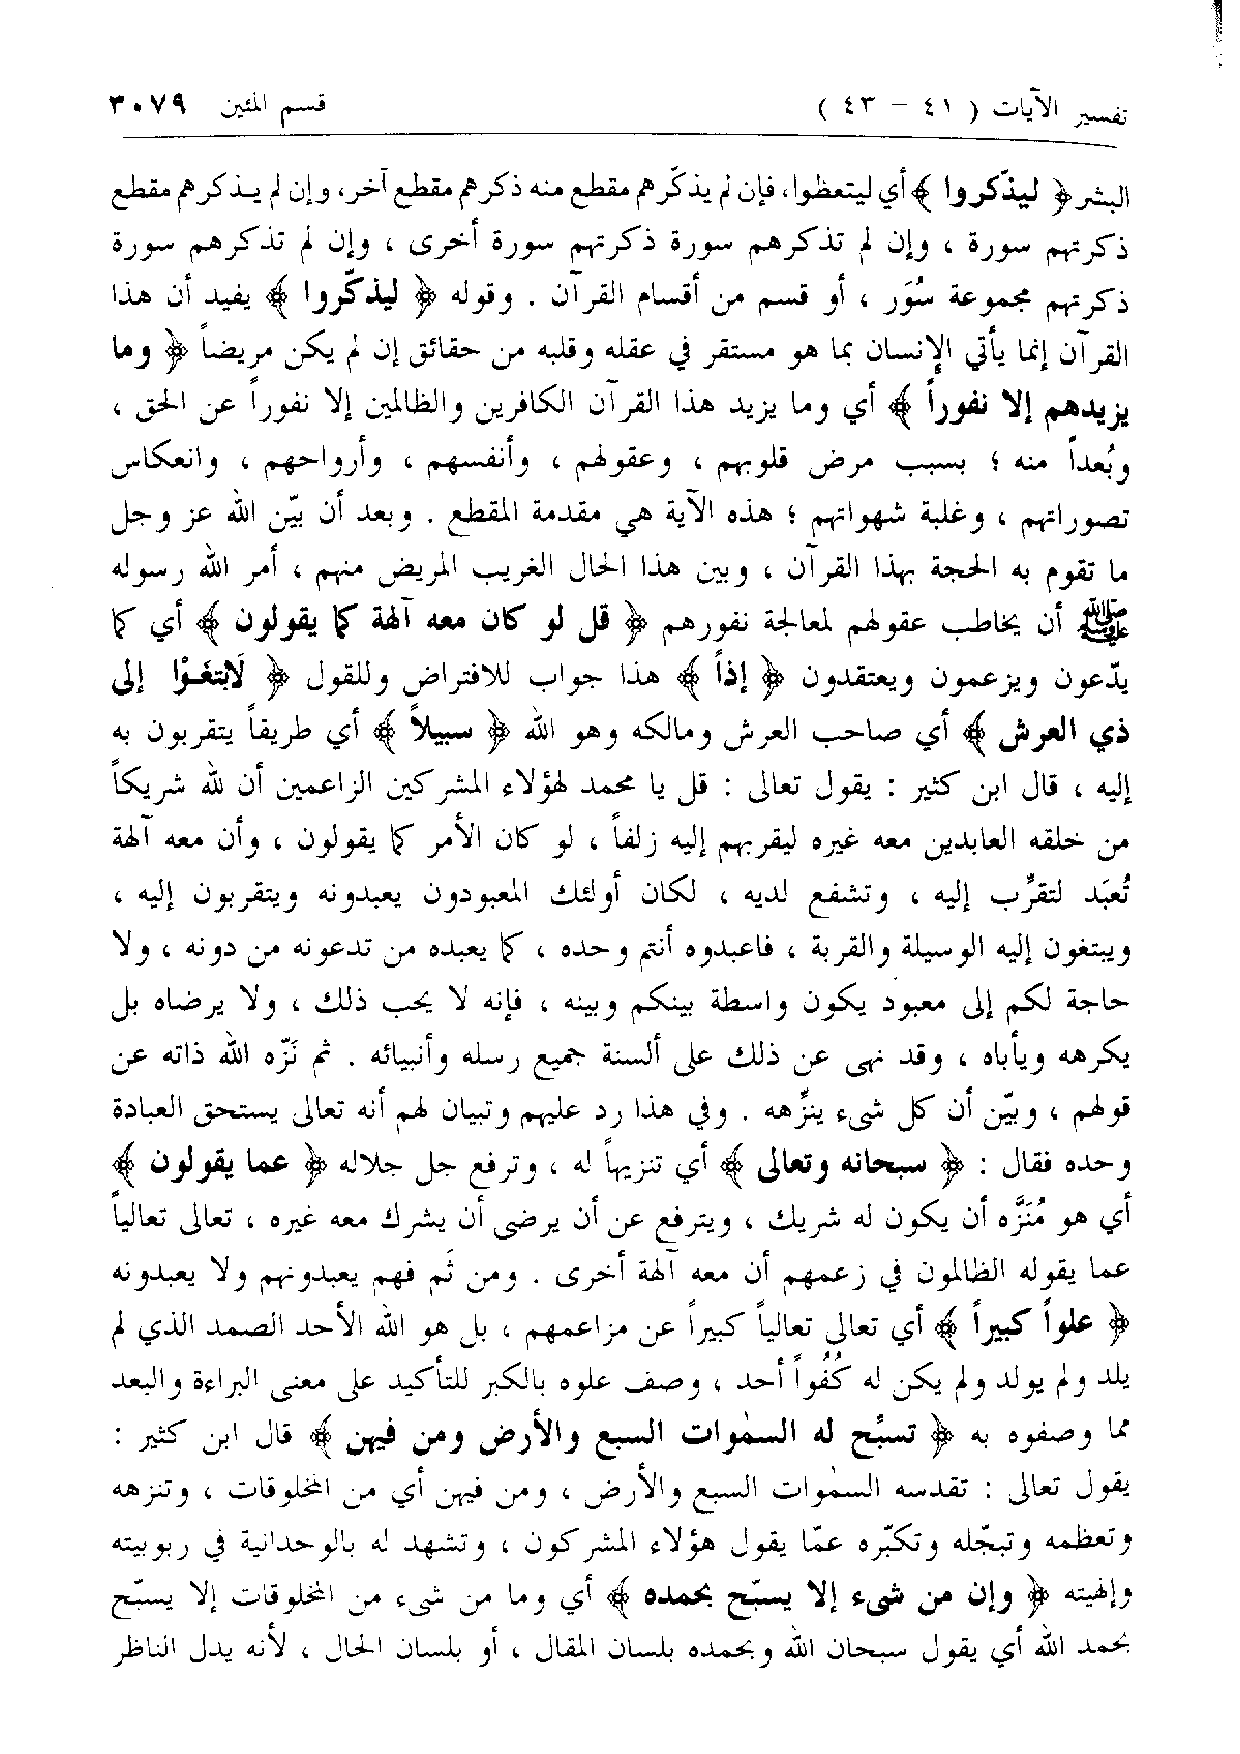 تفسير الآيات ( ٤١ – ٤٣ ) قسم المئين ٣٠٧٩
البشر ﴿ ليذّكروا ﴾ أي ليتعظوا، فإن لم يذكّرهم مقطع منه ذكرهم مقطع آخر، وإن لم يـذكرهم مقطع
ذكرتهم سورة ، وإن لم تذكرهم سورة ذكرتهم سورة أخرى ، وإن لم تذكرهم سورة
ذكرتهم مجموعة سُوَر ، أو قسم من أقسام القرآن . وقوله ﴿ ليذكّروا ﴾ يفيد أن هذا
القرآن إنما يأتي الإنسان بما هو مستقر في عقله وقلبه من حقائق إن لم يكن مريضاً ﴿ وما
يزيدهم إلا نفوراً ﴾ أي وما يزيد هذا القرآن الكافرين والظالمين إلا نفوراً عن الحق ،
وبُعداً منه ؛ بسبب مرض قلوبهم ، وعقولهم ، وأنفسهم ، وأرواحهم ، وانعكاس
تصوراتهم ، وغلبة شهواتهم ؛ هذه الآية هي مقدمة المقطع . وبعد أن بيّن الله عز وجل
ما تقوم به الحجة بهذا القرآن ، وبين هذا الحال الغريب المريض منهم ، أمر الله رسوله
ﷺ أن يخاطب عقولهم لمعالجة نفورهم ﴿ قل لو كان معه آلهة كما يقولون ﴾ أي كما
يدّعون ويزعمون ويعتقدون ﴿ إذاً ﴾ هذا جواب للافتراض وللقول ﴿ لَابْتَغَـوْا إلى
ذي العرش ﴾ أي صاحب العرش ومالكه وهو الله ﴿ سبيلاً ﴾ أي طريقاً يتقربون به
إليه ، قال ابن كثير : يقول تعالى : قل يا محمد لهؤلاء المشركين الزاعمين أن لله شريكاً
من خلقه العابدين معه غيره ليقربهم إليه زلفاً ، لو كان الأمر كما يقولون ، وأن معه آلهة
تُعبَد لتقرِّب إليه ، وتشفع لديه ، لكان أولئك المعبودون يعبدونه ويتقربون إليه ،
ويبتغون إليه الوسيلة والقربة ، فاعبدوه أنتم وحده ، كما يعبده من تدعونه من دونه ، ولا
حاجة لكم إلى معبود يكون واسطة بينكم وبينه ، فإنه لا يحب ذلك ، ولا يرضاه بل
يكرهه ويأباه ، وقد نهى عن ذلك على ألسنة جميع رسله وأنبيائه . ثم نَزّه الله ذاته عن
قولهم ، وبيّن أن كل شىء ينزِّهه . وفي هذا رد عليهم وتبيان لهم أنه تعالى يستحق العبادة
وحده فقال : ﴿ سبحانه وتعالى ﴾ أي تنزيهاً له ، وترفع جل جلاله ﴿ عما يقولون ﴾
أي هو مُنَزَّه أن يكون له شريك ، ويترفع عن أن يرضى أن يشرك معه غيره ، تعالى تعالياً
عما يقوله الظالمون في زعمهم أن معه آلهة أخرى . ومن ثَم فهم يعبدونهم ولا يعبدونه
﴿ علواً كبيراً ﴾ أي تعالى تعالياً كبيراً عن مزاعمهم ، بل هو الله الأحد الصمد الذي لم
يلد ولم يولد ولم يكن له كُفُواً أحد ، وصف علوه بالكبر للتأكيد على معنى البراءة والبعد
مما وصفوه به ﴿ تسبِّح له السمٰوات السبع والأرض ومن فيهن ﴾ قال ابن كثير :
يقول تعالى : تقدسه السمٰوات السبع والأرض ، ومن فيهن أي من المخلوقات ، وتنزهه
وتعظمه وتبجّله وتكبّره عمّا يقول هؤلاء المشركون ، وتشهد له بالوحدانية في ربوبيته
وإلهيته ﴿ وإن من شىء إلا يسبّح بحمده ﴾ أي وما من شىء من المخلوقات إلا يسبّح
بحمد الله أي يقول سبحان الله وبحمده بلسان المقال ، أو بلسان الحال ، لأنه يدل الناظر